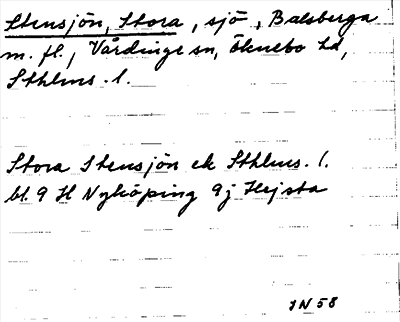 Stensjön, Stora, sjö, Balsberga
m. fl., Vårdinge sn, Öknebo hd,
Sthlms. l.
Stora Stensjön ek Sthlms. l.
bl. 9 H Nyköping 9j Hejsta
IN 58